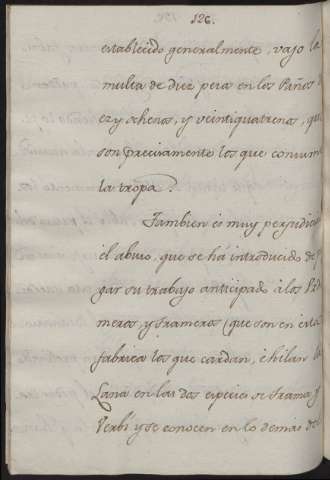 126.
establecido generalmente, vajo la
multa de diez pesos en los Paños
y veintiquatrenos, que
son precisamente los que consume
la tropa.
Tambien es muy perjudicial
el abuso, que se ha introducido de
gar su trabajo anticipado à los
meros, y Trameros (que son en esta
fabrica los que cardan, è hilan la
Lana en las dos especies de Trama, y
Verbi y se conocen en lo demas del